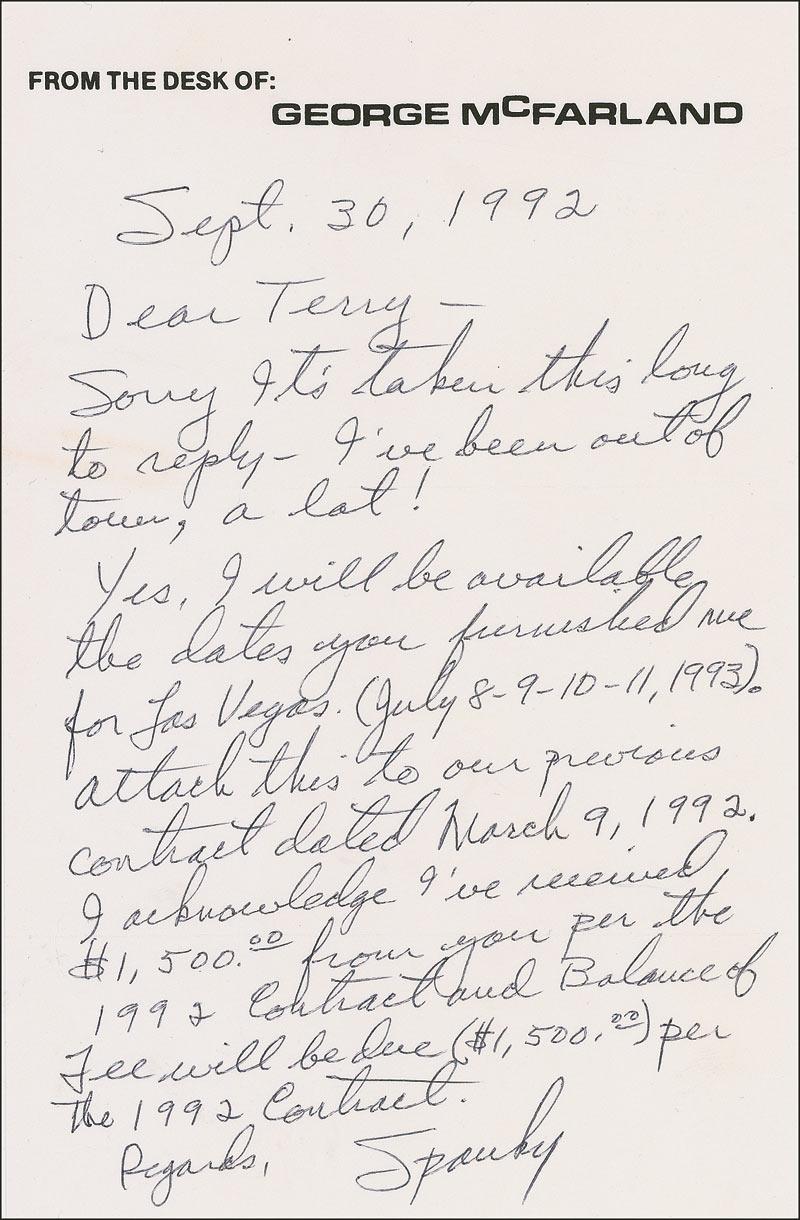 FROM THE DESK OF:
GEORGE McFARLAND
Sept. 30, 1992
Dear Terry –
Sorry It's taken this long
to reply – I've been out of
town, a lot!
Yes, I will be available
the dates you furnished me
for Las Vegas. (July 8-9-10-11, 1993).
attach this to our previous
contract dated March 9, 1992.
I acknowledge I've received
$1,500.00 from you per the
1992 Contract and Balance of
Fee will be due ($1,500.00) per
the 1992 Contract.
Regards, Spanky